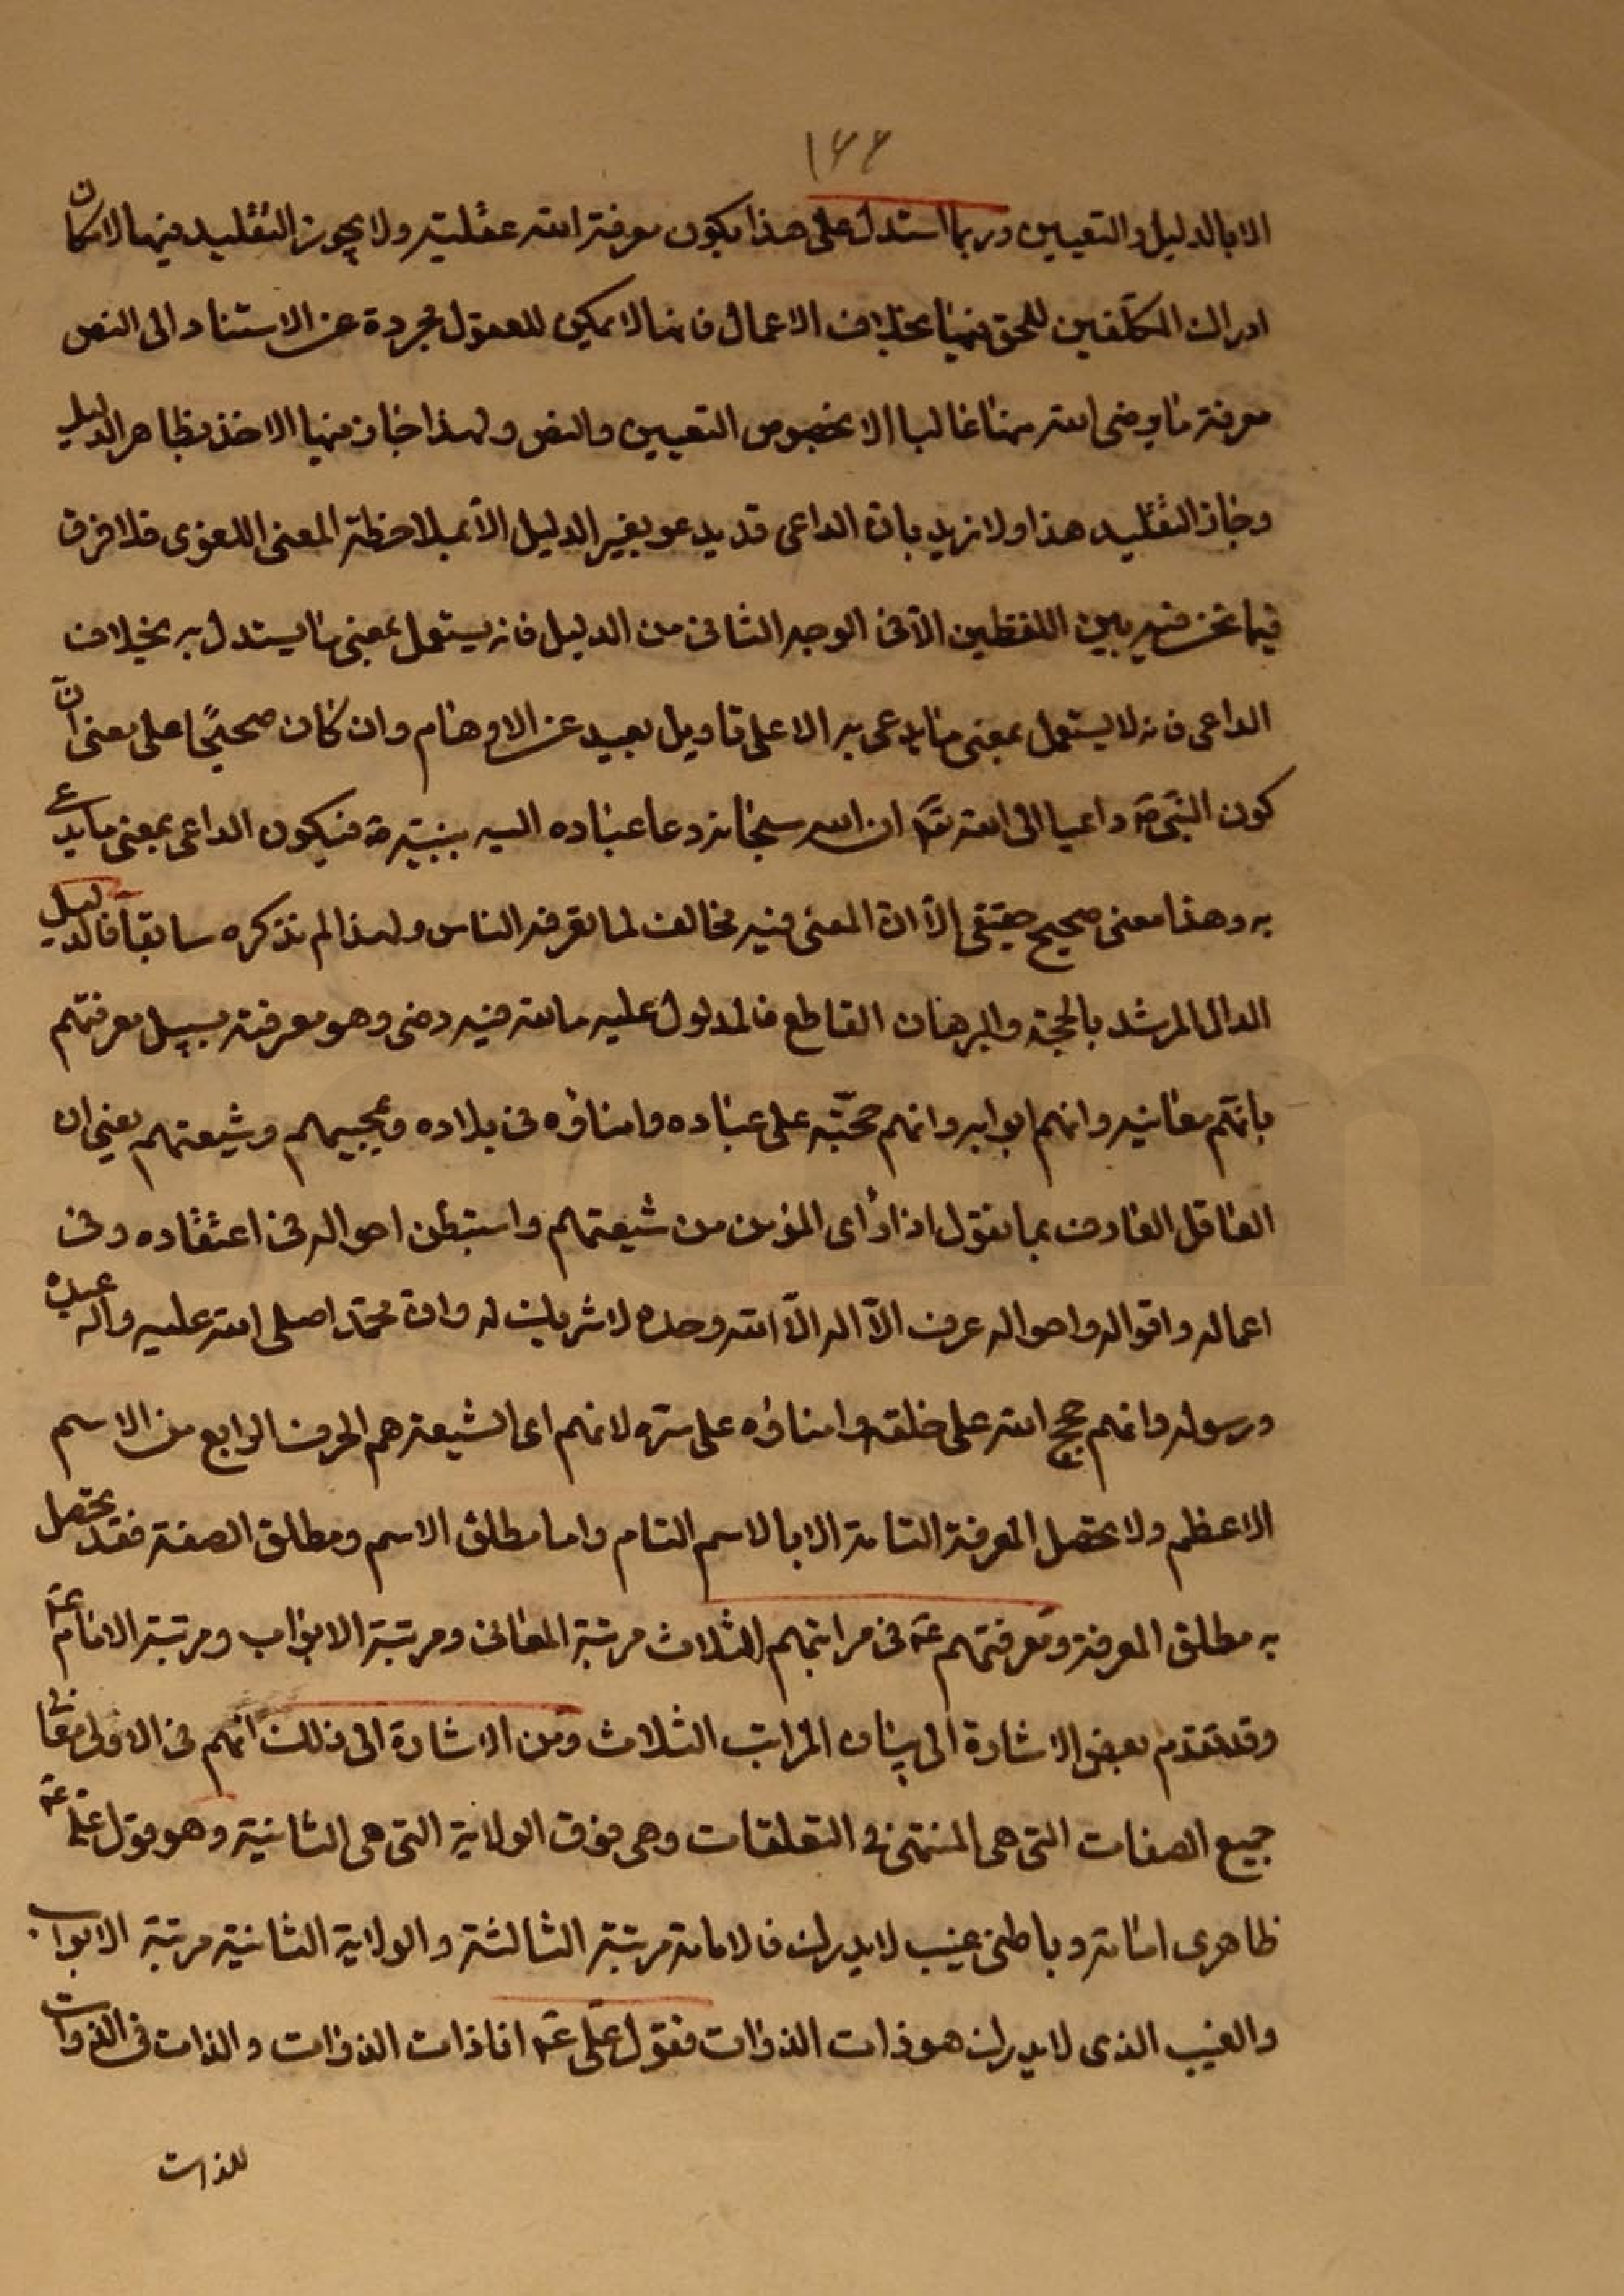 ١٦٦
الا بالدليل والتعيين وربما استدل على هذا بكون معرفة الله عقلية ولا يجوز التقليد فيها لامكان
ادراك المكلفين للحق فيها بخلاف الاعمال فانها لا يمكن للعقول مجردة عن الاستناد الى النص
معرفة ما يرضى الله منها غالبا الا بخصوص التعيين والنص ولهذا جاز فيها الاخذ بظاهر الدليل
وجاز التقليد هذا ولا نريد بان الداعى قد يدعو بغير الدليل الا بملاحظة المعنى اللغوى فلا فرق
فيما نحن فيه بين اللفظين الا فى الوجه الثانى من الدليل فانه يستعمل بمعنى ما يستدل به بخلاف
الداعى فانه لا يستعمل بمعنى ما يدعى به الا على تاويل بعيد عن الاوهام وان كان صحيحًا على معنى انّ
كون النبى ص داعيا الى الله تع ان الله سبحانه دعا عباده اليه بنبيّه ص فيكون الداعى بمعنى ما يدعى
به وهذا معنى صحيح حقيقى الّا انّ المعنى فيه مخالف لما تعرفه الناس ولهذا لم نذكره سابقاً فالدليل
الدال المرشد بالحجة والبرهان القاطع فالمدلول عليه ما لله فيه رضى وهو معرفة سبيل معرفتهم
بانّهم معانيه وانهم ابوابه وانهم حججه على عباده وامناؤه فى بلاده ومجيبهم وشيعتهم يعنى ان
العاقل العارف بما نقول اذا رأى المؤمن من شيعتهم واستبطن احواله فى اعتقاده وفى
اعماله واقواله واحواله عرف الّا اله الّا الله وحده لا شريك له وانّ محمّدا صلى الله عليه وآله عبده
ورسوله وانهم حجج الله على خلقه وامناؤه على سرّه لانهم اى الشيعة هم الحرف الرابع من الاسم
الاعظم ولا يحصل المعرفة التامة الا بالاسم التام واما مطلق الاسم ومطلق الصفة فقد يحصل
به مطلق المعرفة ومعرفتهم ع فى مراتبهم الثلاث مرتبة المعانى ومرتبة الابواب ومرتبة الامام ع
وقد تقدم بعض الاشارة الى بيان المراتب الثلاث ومن الاشارة الى ذلك انهم فى الاولى معانى
جميع الصفات التى هى المنتهى فى التعلقات وهى فوق الولاية التى هى الثانية وهو قول علىّ ع
ظاهرى امامة وباطنى غيب لا يدرك فالامامة مرتبة الثالثة والولاية الثانية مرتبة الابواب
والغيب الذى لا يدرك هو ذات الذوات فقول علىّ ع انا ذات الذوات والذات فى الذوات
للذات